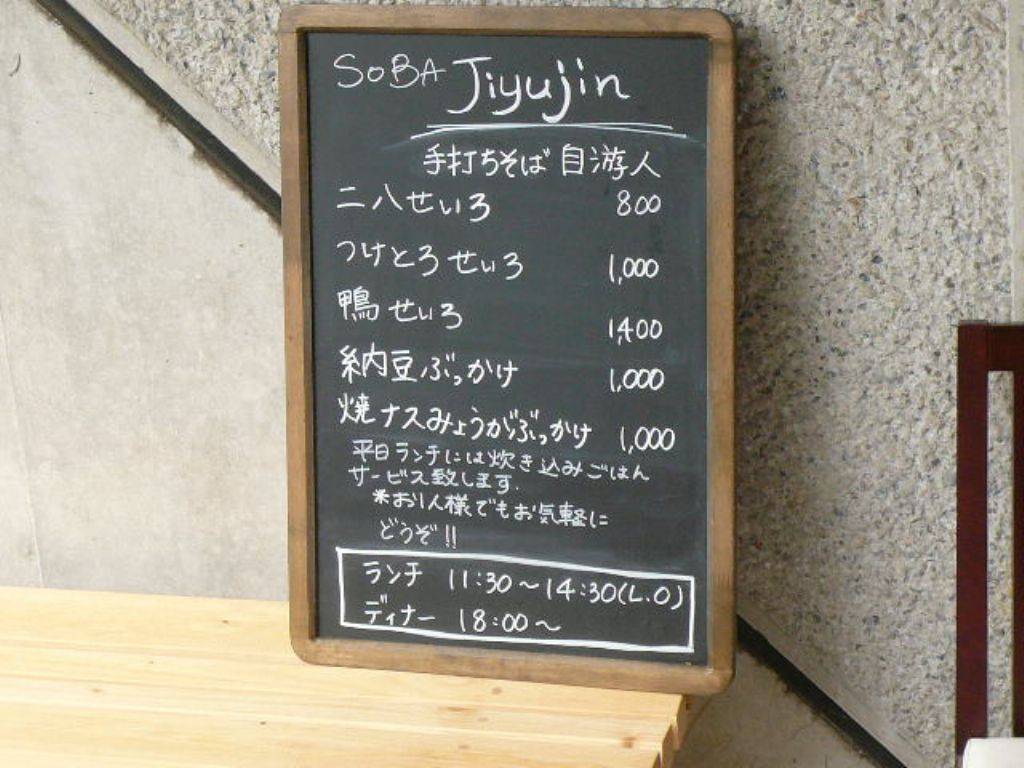 SOBA Jiyujin
手打ちそば 自游人
二八せいろ 800
つけとろせいろ 1,000
鴨せいろ 1,400
納豆ぶっかけ 1,000
焼ナスみょうがぶっかけ 1,000
平日ランチには炊き込みごはん
サービス致します.
*お1人様でもお気軽に
どうぞ!!
ランチ 11:30〜14:30(L.O)
ディナー 18:00〜